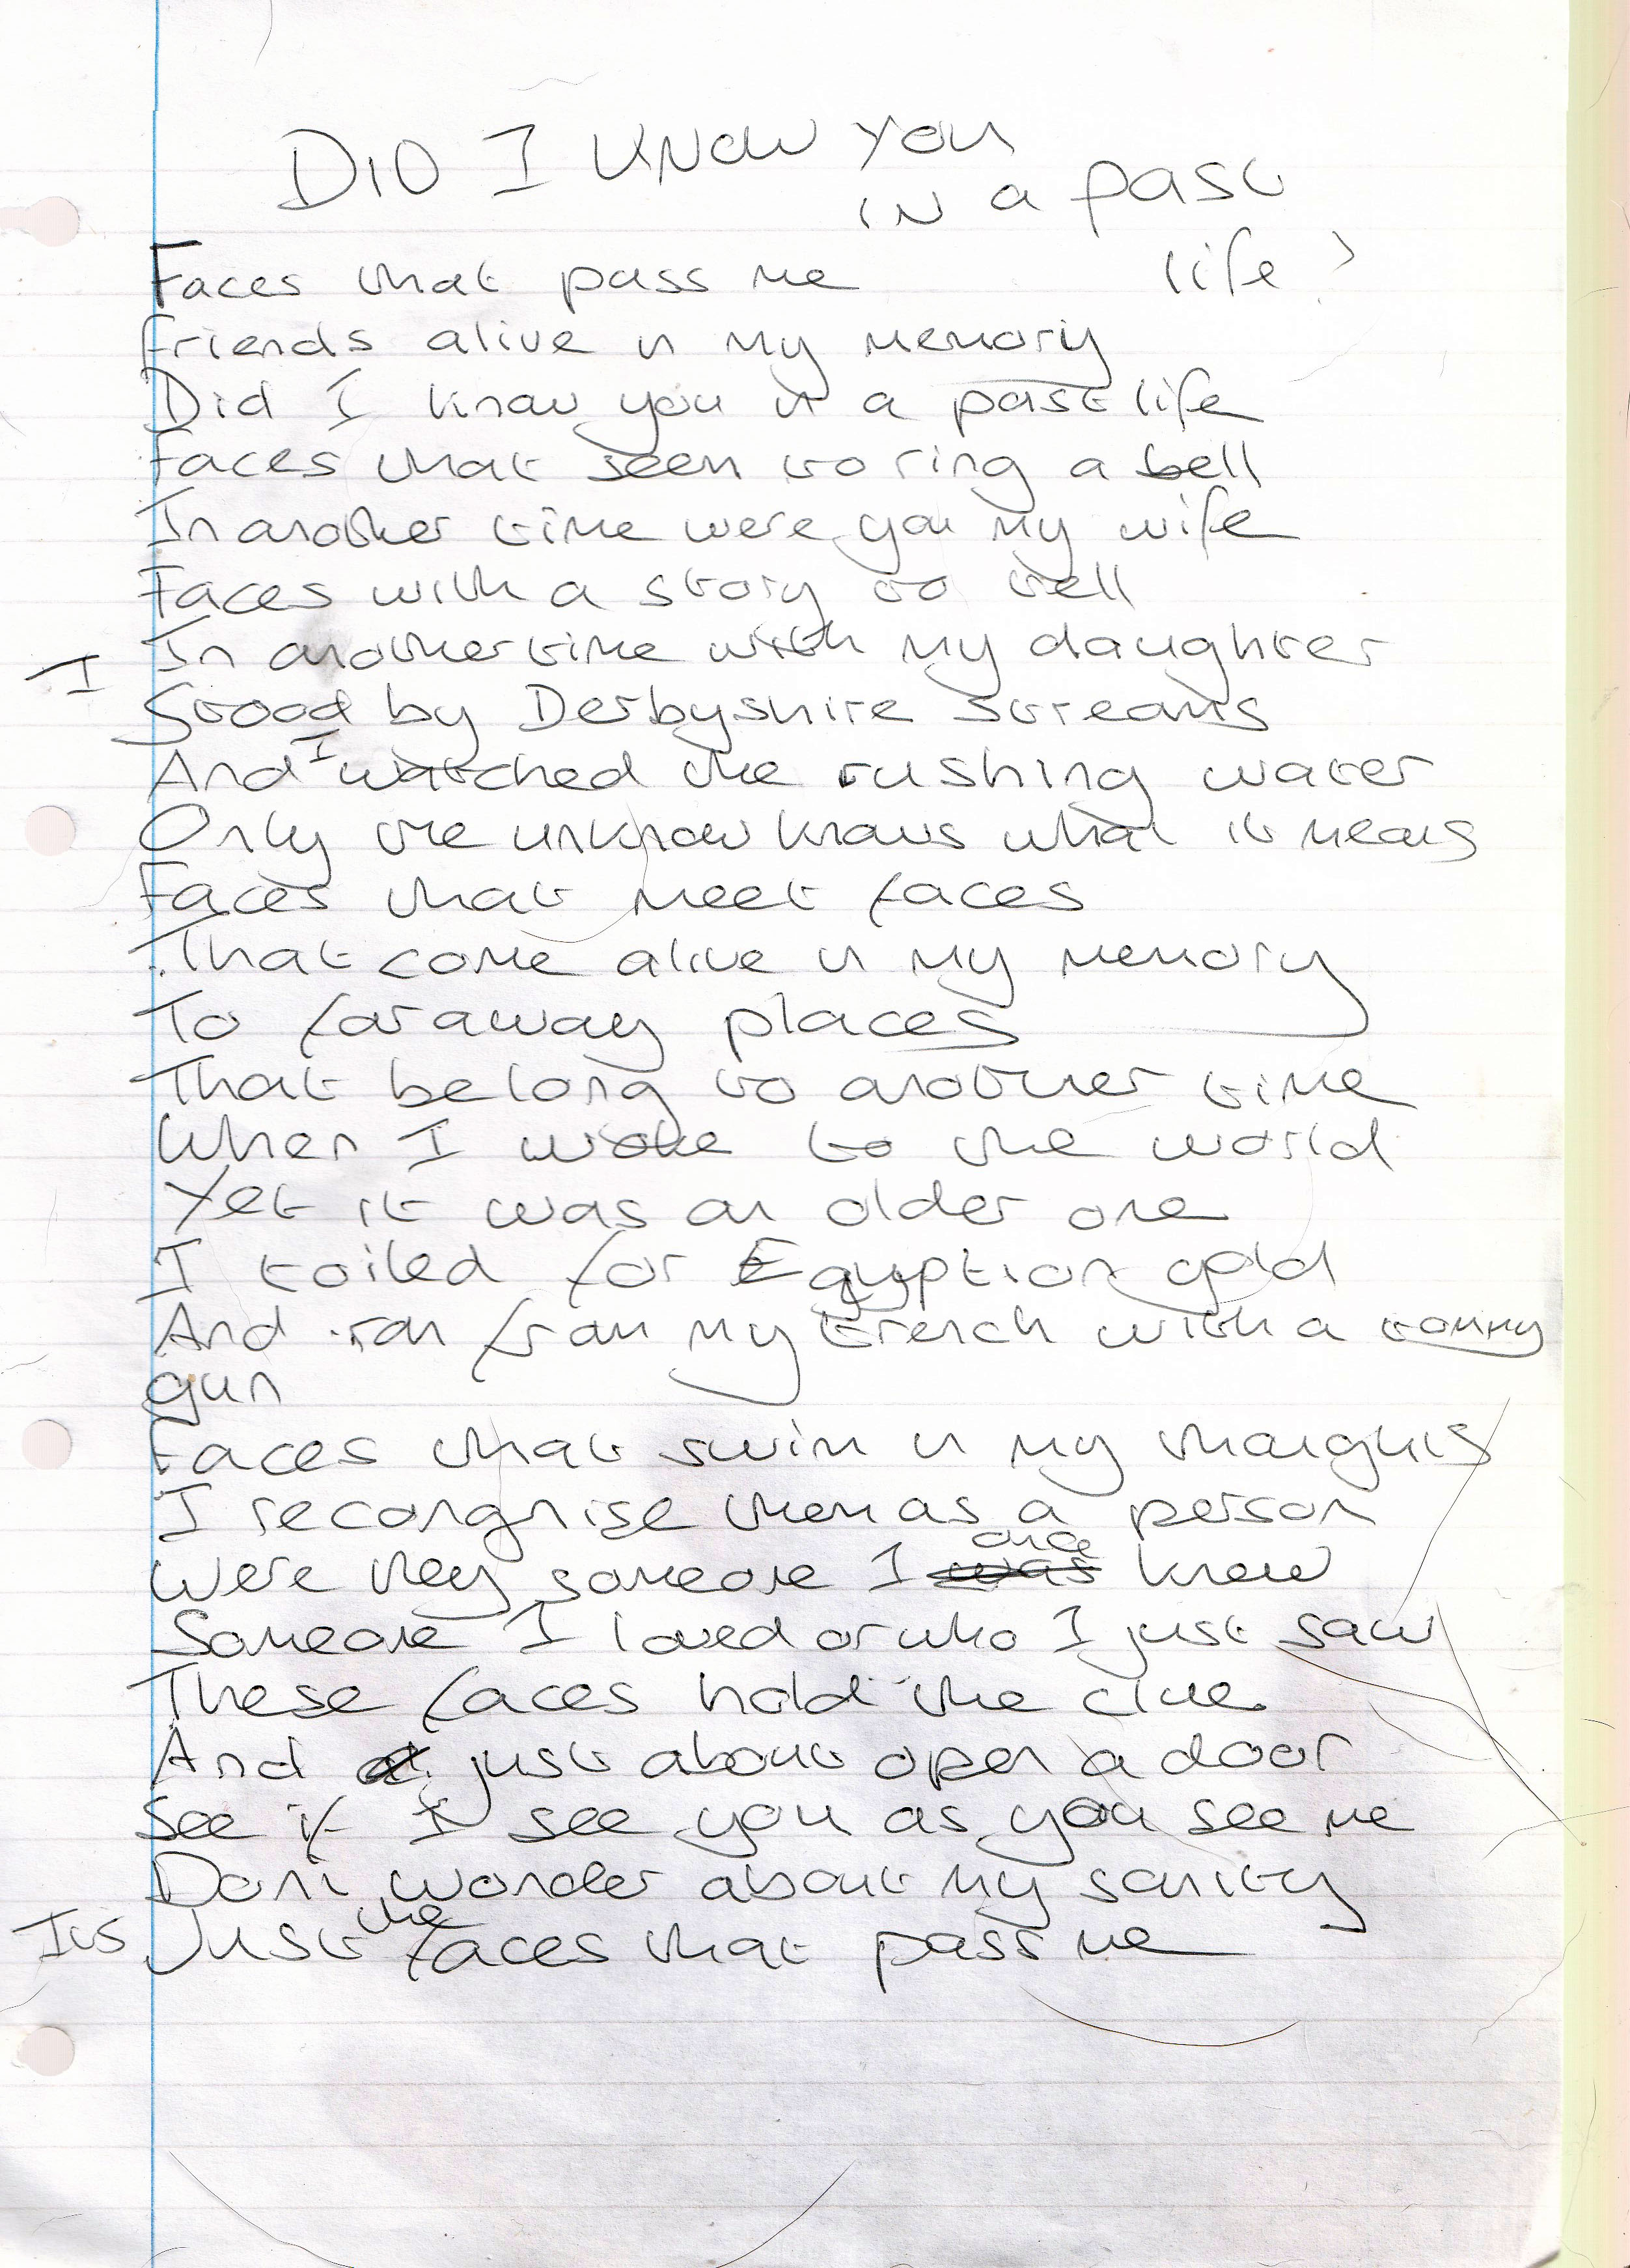 DID I KNOW YOU
IN a past
life?
Faces that pass me
friends alive in my memory
Did I know you in a past life
Faces that seem to ring a bell
In another time were you my wife
Faces with a story to tell
In another time with my daughter
I Stood by Derbyshire streams
And I watched the rushing water
Only the unknow knows what it means
Faces that meet faces
That come alive in my memory
To far away places
That belong to another time
When I woke to the world
Yet it was an older one
I toiled for Egyption gold
And ran from my trench with a tommy
gun
Faces that swim in my thoughts
I recorgnise them as a person
Were they someone I once knew
Someone I loved or who I just saw
These faces hold the clue
And just about open a door
See if I see you as you see me
Dont wonder about my sanity
Its Just the faces that pass me